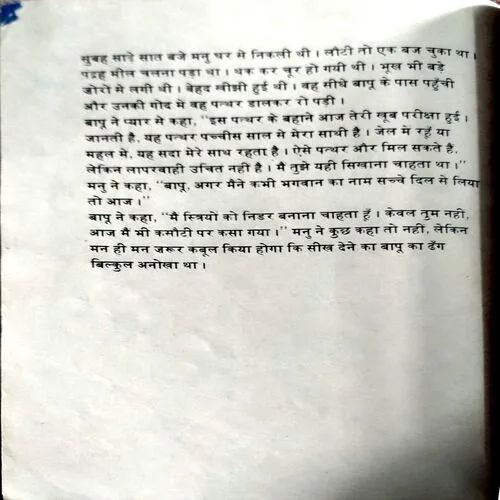 सुबह साढ़े सात बजे मनु घर से निकली थी । लौटी तो एक बज चुका था ।
पंद्रह मील चलना पड़ा था । थक कर चूर हो गयी थी । भूख भी बड़े
जोरों से लगी थी । बेहद खीझी हुई थी । वह सीधे बापू के पास पहुँची
और उनकी गोद में वह पत्थर डालकर रो पड़ी ।
बापू ने प्यार से कहा, "इस पत्थर के बहाने आज तेरी खूब परीक्षा हुई ।
जानती है, यह पत्थर पच्चीस साल से मेरा साथी है । जेल में रहूँ या
महल में, यह सदा मेरे साथ रहता है । ऐसे पत्थर और मिल सकते हैं,
लेकिन लापरवाही उचित नहीं है । मैं तुझे यही सिखाना चाहता था ।"
मनु ने कहा, "बापू, अगर मैंने कभी भगवान का नाम सच्चे दिल से लिया
तो आज ।"
बापू ने कहा, "मैं स्त्रियों को निडर बनाना चाहता हूँ । केवल तुम नहीं,
आज मैं भी कसौटी पर कसा गया ।" मनु ने कुछ कहा तो नहीं, लेकिन
मन ही मन जरूर कबूल किया होगा कि सीख देने का बापू का ढंग
बिल्कुल अनोखा था ।